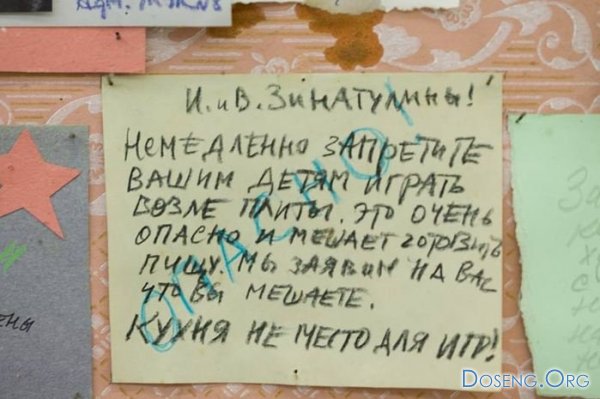 Адм. ЖЭК №8
И. и В. Зинатулины!
НЕМЕДЛЕННО ЗАПРЕТИТЕ
ВАШИМ ДЕТЯМ ИГРАТЬ
ВОЗЛЕ ПЛИТЫ. ЭТО ОЧЕНЬ
ОПАСНО И МЕШАЕТ ГОТОВИТЬ
ПИЩУ. МЫ ЗАЯВИМ НА ВАС
ЧТО ВЫ МЕШАЕТЕ.
КУХНЯ НЕ МЕСТО ДЛЯ ИГР!
ОПАСНО!
ены
За
Doseng.Org